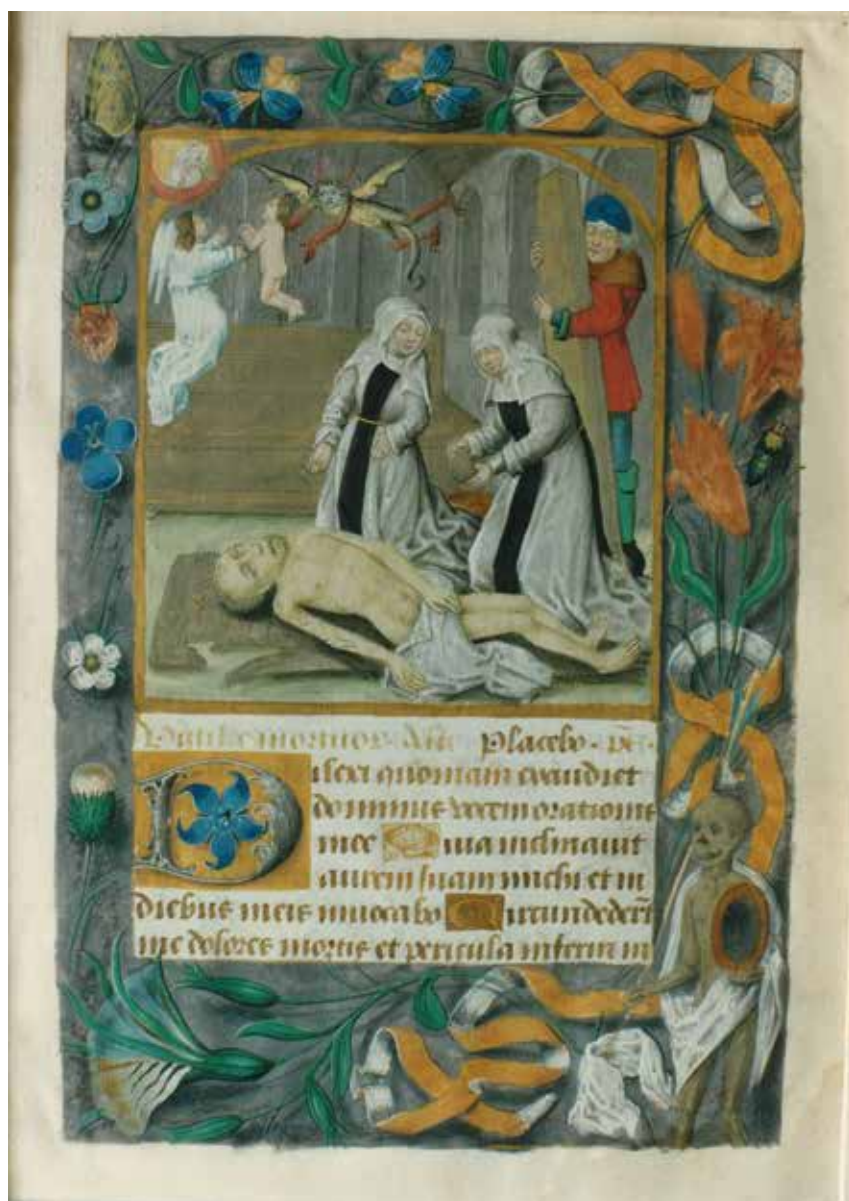 mortuor. Placebo. ps.
Dilexi quoniam exaudiet
dominus vocem orationis
mee Quia inclinauit
aurem suam michi et in
diebus meis inuocabo Circundederūt
me dolores mortis et pericula inferni in